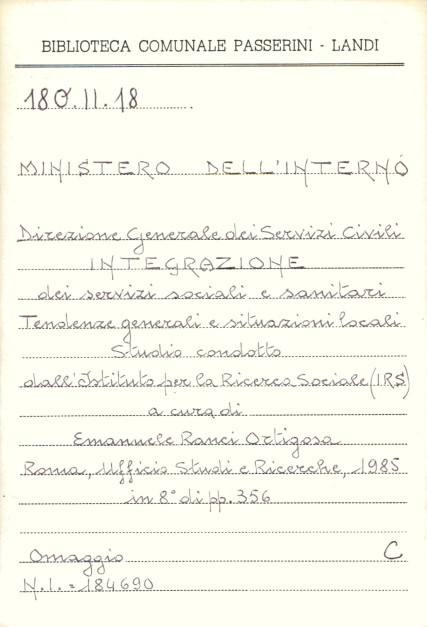 BIBLIOTECA COMUNALE PASSERINI - LANDI
180.II.18
MINISTERO DELL'INTERNO
Direzione Generale dei Servizi Civili
INTEGRAZIONE
dei servizi sociali e sanitari
Tendenze generali e situazioni locali
Studio condotto
dall'Istituto per la Ricerca Sociale (IRS)
a cura di
Emanuele Ranci Ortigosa
Roma, Ufficio Studi e Ricerche, 1985
in 8° di pp. 356
Omaggio C
N.I. = 184690